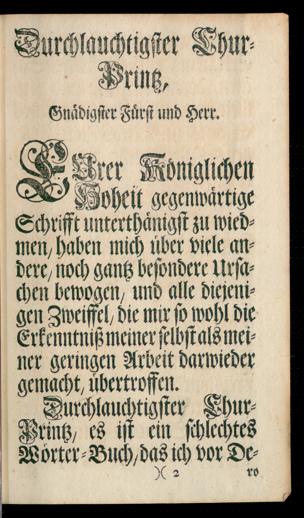 Durchlauchtigster Chur-
Printz,
Gnädigster Fürst und Herr.
EUrer Königlichen
Hoheit gegenwärtige
Schrifft unterthänigst zu wied-
men, haben mich über viele an-
dere, noch gantz besondere Ursa-
chen bewogen, und alle diejeni-
gen Zweiffel, die mir so wohl die
Erkenntniß meiner selbst als mei-
ner geringen Arbeit darwieder
gemacht, übertroffen.
Durchlauchtigster Chur-
Printz, es ist ein schlechtes
Wörter-Buch, das ich vor De-
)( 2 ro